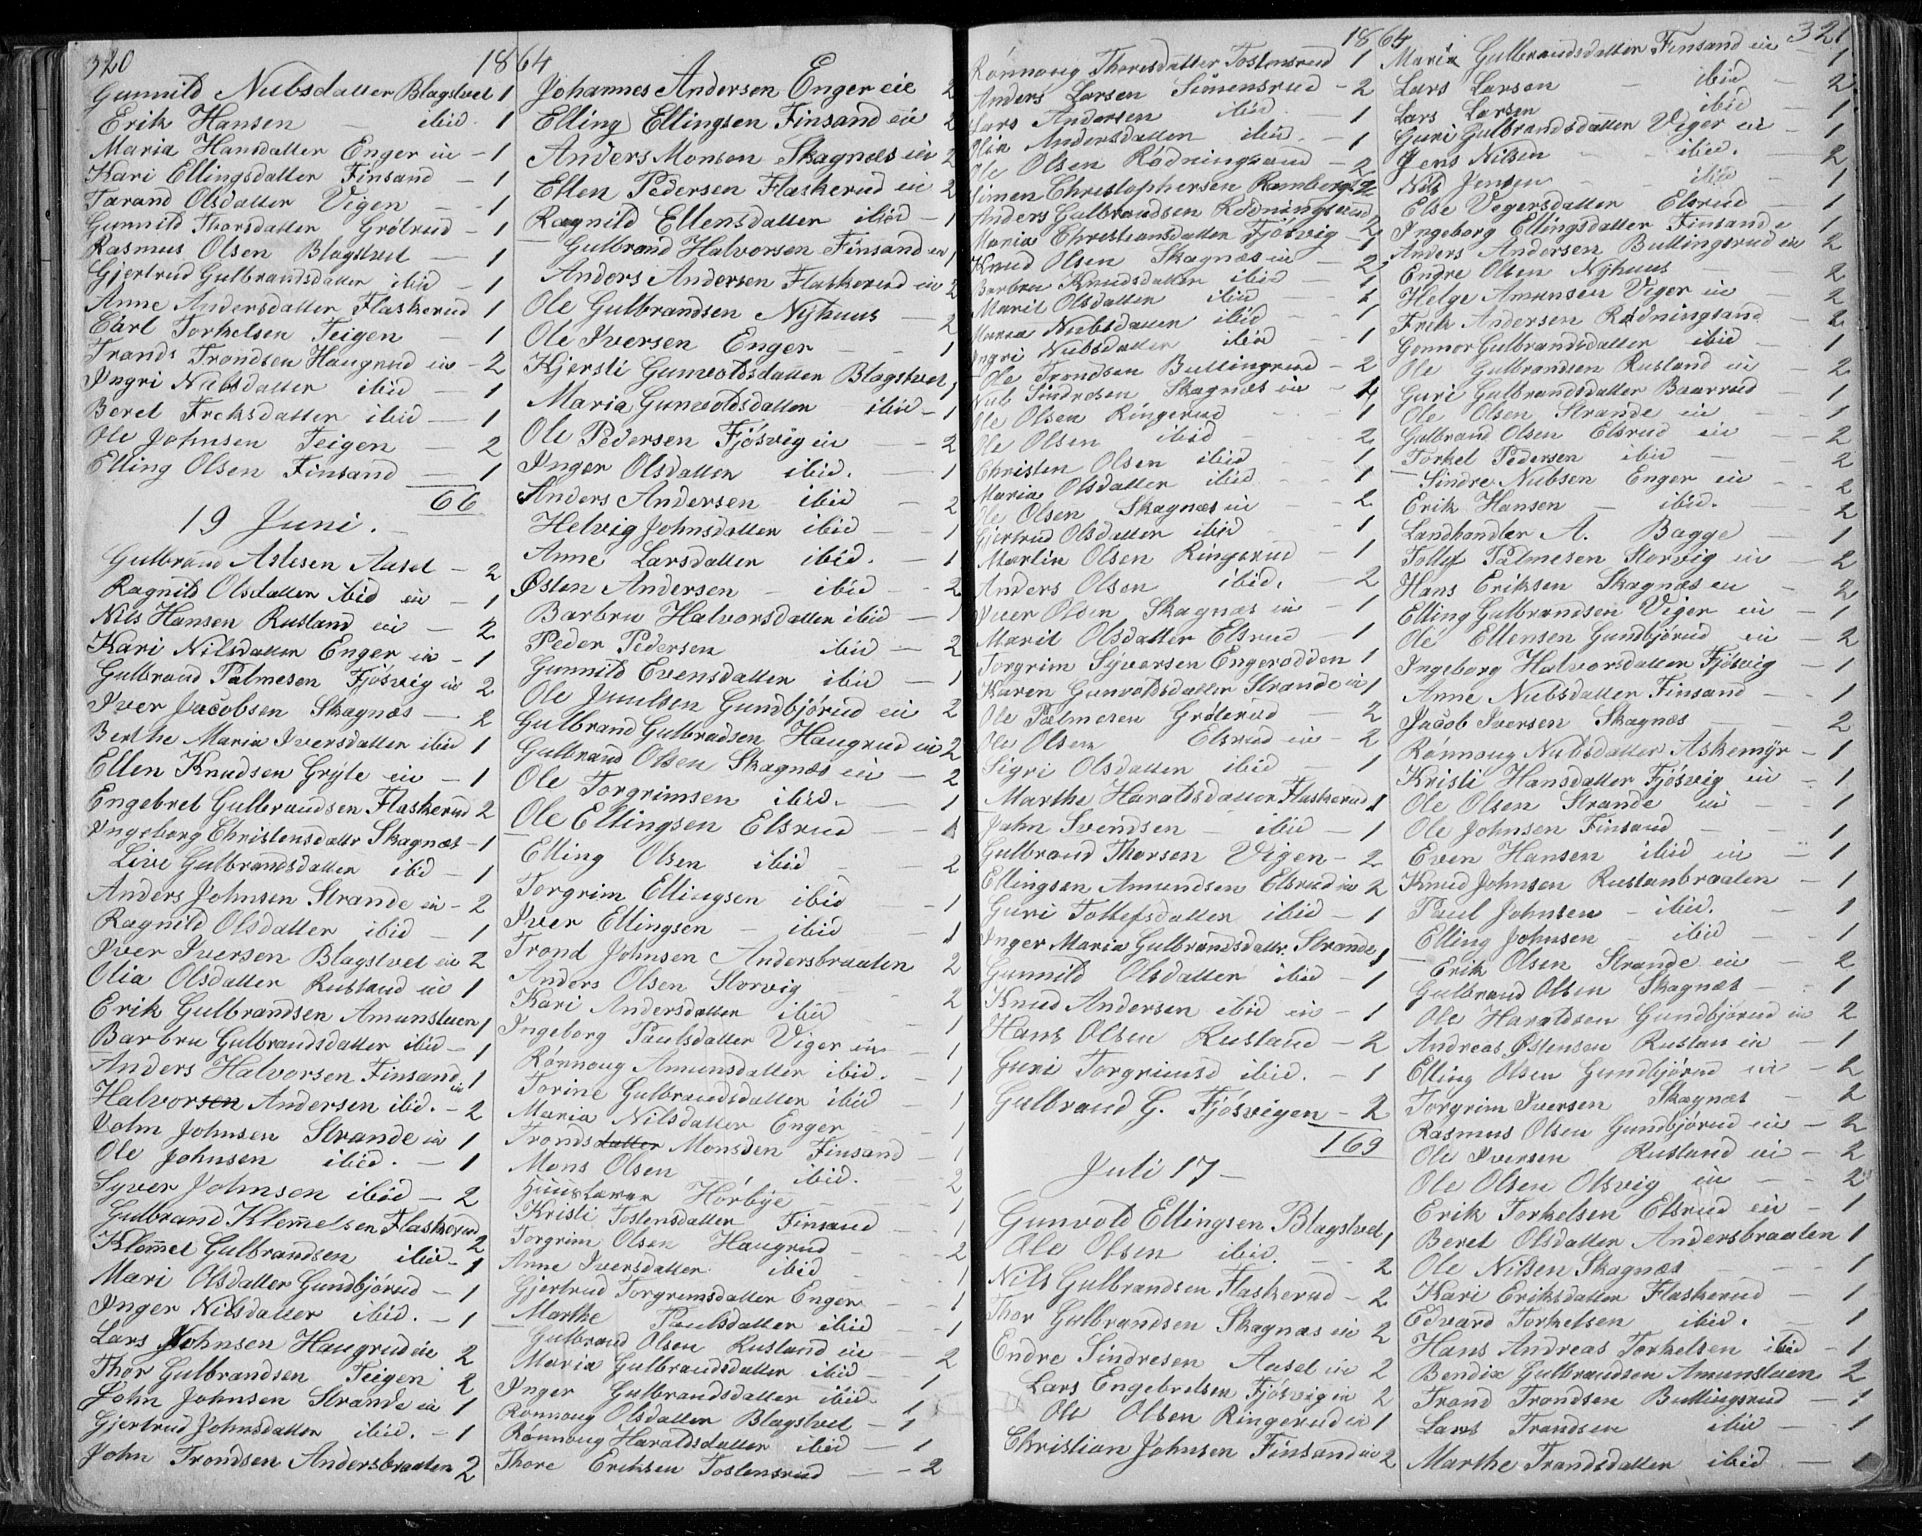 320
1864
Gunnild Nubsdatter Blagstvet 1
Erik Hansen — ibid. 1
Maria Hansdatter Enger eie — 1
Kari Ellingsdatter Finsand — 1
Tarand Olsdatter Vigen — 1
Gunnild Thorsdatter Grøterud — 1
Rasmus Olsen Blagstvet — 1
Gjertrud Gulbrandsdatter ibid — 1
Anne Andersdatter Flaskerud 1
Carl Torkelsen Teigen — 1
Trands Trondsen Haugrud eie — 2
Ingri Nubsdatter ibid — 1
Beret Ereksdatter ibid — 1
Ole Johnsen Teigen — 2
Elling Olsen Finsand — 1
66
19 Juni. —
Gulbrand Aslesen Aasel — 2
Ragnild Olsdatter ibid eie — 1
Nils Hansen Rusland eie — 2
Kari Nilsdatter Enger eie — 1
Gulbrand Palmesen Fjøsvig eie 2
Iver Jacobsen Skagnæs — 2
Berthe Maria Iversdatter ibid 1
Ellen Knudsen Gryte eie — 1
Engebret Gulbrandsen Flaskerud 2
Ingeborg Christensdattr Skagnæs — 1
Live Gulbrandsdatter ibid — 1
Anders Johnsen Strande eie — 2
Ragnild Olsdatter ibid — 1
Iver Iversen Blagstvet eie 2
Olia Olsdatter Rusland eie 1
Erik Gulbrandsen Amunstuen 1
Barbru Gulbrandsdatter ibid — 1
Anders Halvorsen Finsand eie 1
Halvorsen Andersen ibid. — 2
John Johnsen Strande eie 1
Ole Johnsen ibid. — 1
Syver Johnsen ibid — 2
Gulbrand Klemmetsen Flaskerud 2
Klemmet Gulbrandsen ibid — 1
Mari Olsdatter Gundbjørud — 1
Inger Nilsdatter ibid. — 1
Lars Johnsen Haugrud eie 2
Thor Gulbrandsen Teigen 2
John Johnsen Strande eie 1
Gjertrud Johnsdatter ibid. — 1
John Trondsen Andersbraaten 2
Johannes Andersen Enger eie 2
Elling Ellingsen Finsand eie 2
Anders Monsen Skagnæs eie 2
Ellen Pedersen Flaskerud eie 2
Ragnild Ellensdatter ibid — 1
Gulbrand Halvorsen Finsand eie 1
Anders Andersen Flaskerud eie 2
Ole Gulbrandsen Nyhuus — 2
Ole Iversen Enger — 1
Kjersti Gunvoldsdatter Blagstvet 1
Maria Gunvoldsdatter ibid — 1
Ole Pedersen Fjøsvig eie — 2
Inger Olsdatter ibid. — 1
Anders Andersen ibid — 2
Helvig Johnsdatter ibid — 1
Anne Larsdatter ibid. — 1
Østen Andersen — ibid — 2
Barbru Halvorsdatter ibid — 1
Peder Pedersen ibid — 2
Gunnild Evensdatter ibid — 1
Ole Juulsen Gundbjørud eie 2
Gulbrand Gulbradsen Haugrud eie 2
Gulbrand Olsen Skagnæs eie — 2
Ole Torgrimsen ibid. — 1
Ole Ellingsen Elsrud — 1
Elling Olsen ibid — 2
Torgrim Ellingsen ibid — 1
Iver Ellingsen — ibid — 1
Trond Johnsen Andersbraaten 2
Anders Olsen Storvig — 2
Kari Andersdatter ibid — 1
Ingeborg Paulsdatter Viger eie 1
Rønnoug Amunsdatter ibid. — 1
Torine Gulbrandsdatter ibid — 1
Maria Nilsdatter Enger — 1
Trondsdatter Monsden Finsand — 1
Mons Olsen ibid. 2
Huuslærer Hørbye — 1
Kristi Tostensdatter Finsand — 1
Torgrim Olsen Haugrud — 2
Anne Iversdatter ibid — 1
Gjertrud Torgrimsdatter Enger — 1
Marthe Paulsdatter ibid — 1
Gulbrand Olsen Rusland eie — 2
Maria Gulbrandsdatter ibid — 1
Inger Gulbrandsdatter ibid — 1
Rønnoug Olsdatter Blagstvet — 1
Rønnoug Haraldsdatter ibid — 1
Thore Eriksen Tostensrud — 2
1864
321
Rønnoug Thoresdatter Tostensrud 1
Anders Larsen Simensrud — 2
Lars Andersen ibid — 1
Olia Andersdatter ibid. — 1
Ole Olsen Rødningsand — 2
Simen Christophersen Ramberg 2
Anders Gulbrandsen Rødningsand 2
Maria Christiansdatter Fjøsvig — 1
Knud Olsen Skagnæs eie — 2
Barbru Knudsdatter ibid — 1
Marit Olsdatter ibid — 1
Maria Nubsdatter ibid — 1
Ingri Nubsdatter ibid — 1
Ole Trondsen Buttingsrud — 2
Nub Sindresen Skagnæs eie — 1
Ole Olsen Ringerud — 1
Ole Olsen ibid — 2
Christen Olsen ibid — 1
Maria Olsdatter ibid — 1
Ole Olsen Skagnæs eie — 2
Gjertrud Olsdatter ibid — 1
Martin Olsen Ringerud — 1
Anders Olsen ibid. — 2
Iver Olsen Skagnæs eie — 1
Marit Olsdatter Elsrud — 1
Torgrim Syversen Engerodden 1
Karen Gunvoldsdatter Strande eie 1
Ole Palmesen Grøterud — 2
Ole Olsen Elsrud eie — 2
Sigri Olsdatter ibid — 1
Marthe Haraldsdatter Flaskerud 1
John Svendsen — ibid — 1
Gulbrand Thorsen Vigen — 2
Ellingsen Amundsen Elsrud eie 2
Guri Tollefsdatter ibid — 1
Inger Maria Gulbrandsdattr. Strande 1
Gunnild Olsdatter ibid — 1
Knud Andersen ibid eie — 1
Hans Olsen Rusland — 2
Guri Torgrimsd ibid. — 1
Gulbrand G. Fjøsvigen — 2
169
Juli 17 —
Gunvold Ellingsen Blagstvet 1
Ole Olsen ibid. — 2
Nils Gulbrandsen Flaskerud — 2
Thor Gulbrandsen Skagnæs eie 2
Endre Sindresen Aasel eie 2
Lars Engebretsen Fjøsvig eie 2
Ole Olsen Ringerud eie 1
Christian Johnsen Finsand eie 2
Maria Gulbrandsdatter Finsand eie 1
Lars Larsen — ibid — 2
Lars Larsen ibid — 1
Guri Gulbrandsdatter Viger eie — 1
Jens Nilsen — ibid. — 2
Nils Jensen — ibid — 1
Else Vegersdatter Elsrud — 1
Ingeborg Ellingsdatter Finsand e 1
Anders Andersen Buttingsrud eie 2
Endre Olsen Nyhuus — 2
Helge Amunsen Viger eie 2
Erik Andersen Rødningsand — 2
Gonnor Gulbrandsdatter ibid — 1
Ole Gulbrandsen Rusland eie — 2
Guri Gulbrandsdatter Baarrud — 1
Ole Olsen Strande eie — 1
Gulbrand Olsen Elsrud eie — 2
Torkel Pedersen ibid — 2
Sindre Nubsen Enger eie — 2
Erik Hansen — ibid. 2
Landhandler A. Bagge — 1
Tollef Palmesen Storvig eie — 2
Hans Eriksen Skagnæs eie — 2
Elling Gulbrandsen Viger eie — 1
Ole Ellensen Gundbjørud eie — 2
Ingeborg Halvorsdatter Fjøsvig — 1
Anne Nubsdatter Finsand — 1
Jacob Iversen Skagnæs — 2
Rønnoug Nubsdatter Askemyr — 1
Kristi Hansdatter Fjøsvig eie — 1
Ole Olsen Strande eie — 1
Ole Johnsen Finsand — 1
Even Hansen ibid eie — 1
Knud Johnsen Ruslanbraaten — 1
Paul Johnsen — ibid. — 1
Elling Johnsen — ibid — 1
Erik Olsen Strande eie — 2
Gulbrand Olsen Skagnæs — 1
Ole Haraldsen Gundbjørud eie 2
Andreas Østensen Ruslan eie — 1
Elling Olsen Gundbjørud eie — 2
Torgrim Iversen Skagnæs — 2
Rasmus Olsen Gundbjørud eie — 2
Ole Iversen Rusland eie — 2
Ole Olsen Olsvig eie — 2
Erik Torkelsen Elsrud eie — 1
Beret Olsdatter Andersbraaten 1
Ole Nilsen Skagnæs — 1
Kari Eriksdatter Flaskerud — 1
Edvard Torkelsen ibid. — 1
Hans Andreas Torkelsen ibid — 1
Bendix Gulbrandsen Amunstuen 2
Trond Trondsen Buttingsrud — 1
Lars Trandsen ibid — 1
Marthe Trandsdatter ibid — 1